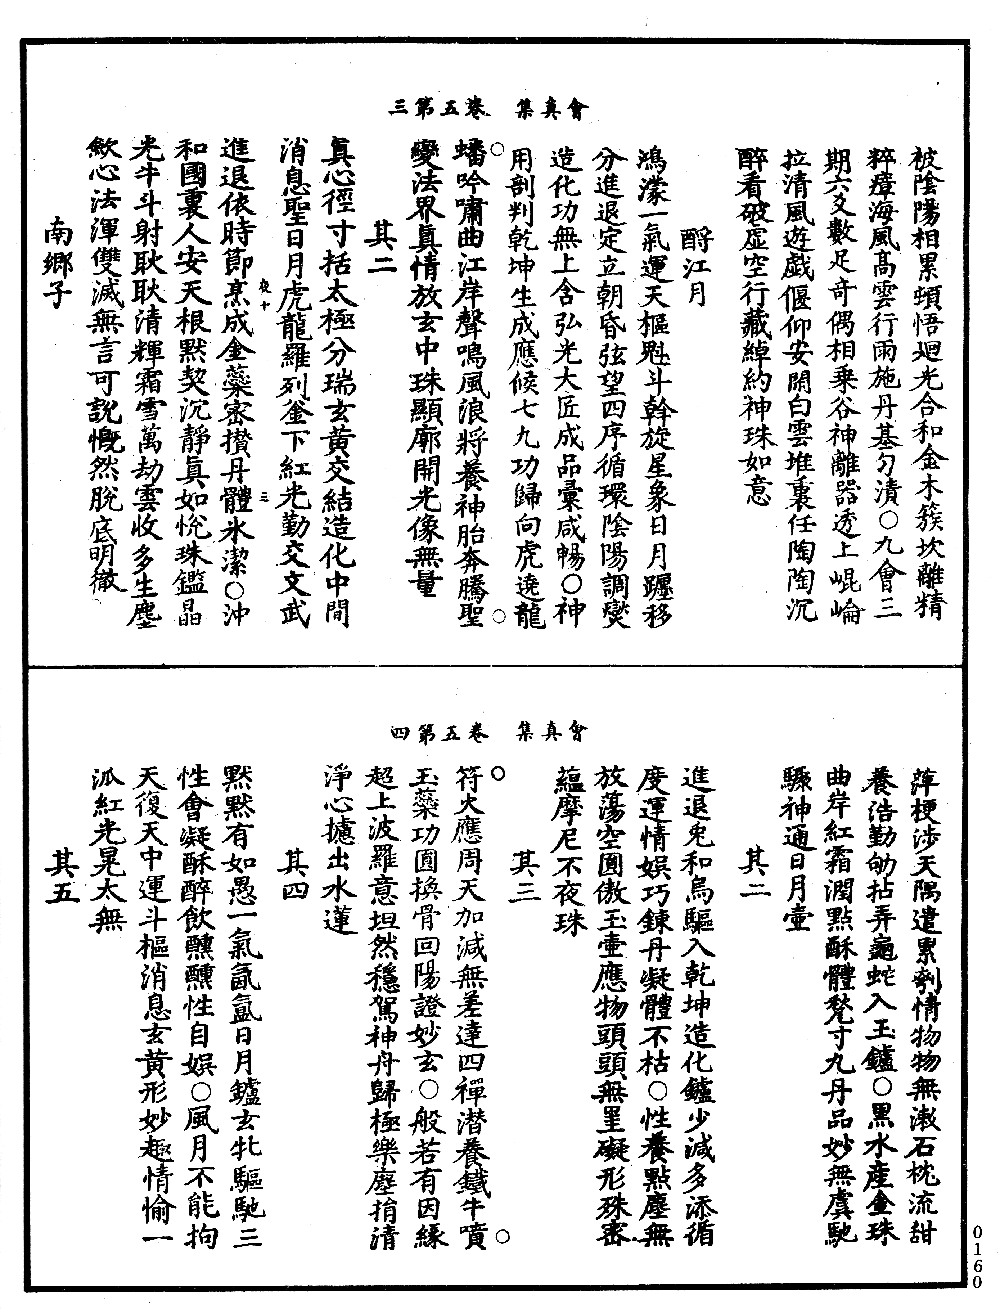 會真集　卷五第三
被陰陽相累頓悟廻光合和金木簇坎離精
粹瘴海風高雲行雨施丹基匀漬○九會三
期六爻數足奇偶相乗谷神離器透上崐崘
拉清風遊戯偃仰安閑白雲堆裏任陶陶沉
醉看破虚空行藏綽約神珠如意
酹江月
鴻濛一氣運天樞魁斗斡旋星象日月躔移
分進退定立朝昏弦望四序循環陰陽調爕
造化功無上含弘光大匠成品彙咸暢○神
用剖判乾坤生成應候七九功歸向虎遶龍
蟠吟嘯曲江岸聲鳴風浪將養神胎奔騰聖
變法界真情放玄中珠顯廓開光像無量
其二
真心徑寸括太極分瑞玄黄交結造化中間
消息聖日月虎龍羅列釜下紅光勤交文武
進退依時節烹成金藥宻攅丹體氷潔○沖
和國裏人安天根黙契沉靜真如悅珠鑑晶
光牛斗射耿耿清輝霜雪萬劫雲收多生塵
歛心法渾雙滅無言可說慨然脫底明徹
夜十
三
南鄉子
會真集　卷五第四
萍梗涉天隅遣累剜情物物無漱石枕流甜
養浩勤劬拈弄龜蛇入玉鑪○黒水産金珠
曲岸紅霜潤點酥體凳寸九丹品妙無虞馳
驟神通日月壷
其二
進退兎和烏驅入乾坤造化鑪少減多添循
度運情娱巧鍊丹凝體不枯○性養點塵無
放蕩空圎傲玉壷應物頭頭無罣礙形殊宻
藴摩尼不夜珠
其三
符火應周天加減無差達四禪潛養鐵牛噴
玉藥功圎換骨回陽證妙玄○般若有因緣
超上波羅意坦然穩駕神舟歸極樂塵捐清
淨心攄出水蓮
其四
黙黙有如愚一氣氤氲日月鑪玄牝驅馳三
性會凝酥醉飲醺醺性自娱○風月不能拘
天復天中運斗樞消息玄黄形妙趣情愉一
派紅光晃太無
其五
0160